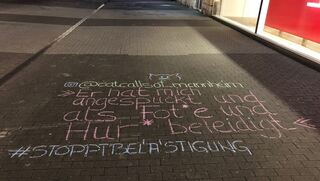 @catcalls_of_mannheim
»Er hat mich
angespuckt und
als Fot*e und
Hur* beleidigt.«
#STOPPTBELÄSTIGUNG